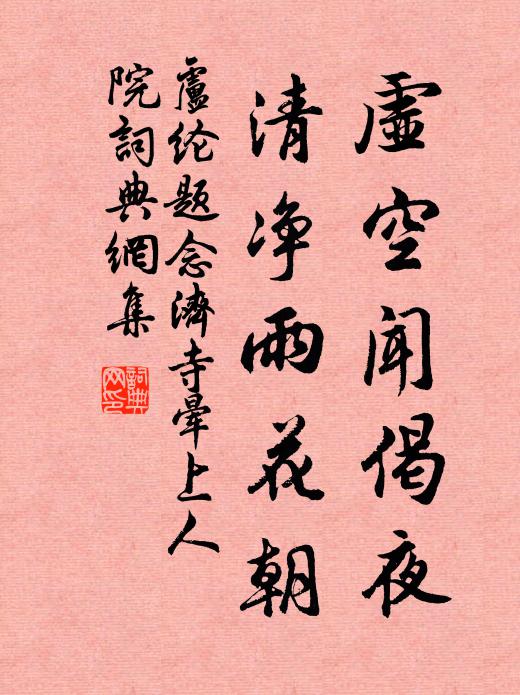 虛空聞偈夜
清净雨花朝
盧纶题念濟寺暈上人
院詞典網集
詞典
网印